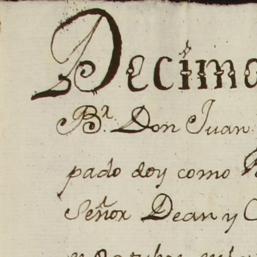 Decimo
B.r Don Juan
pado doy como
Señor Dean y C